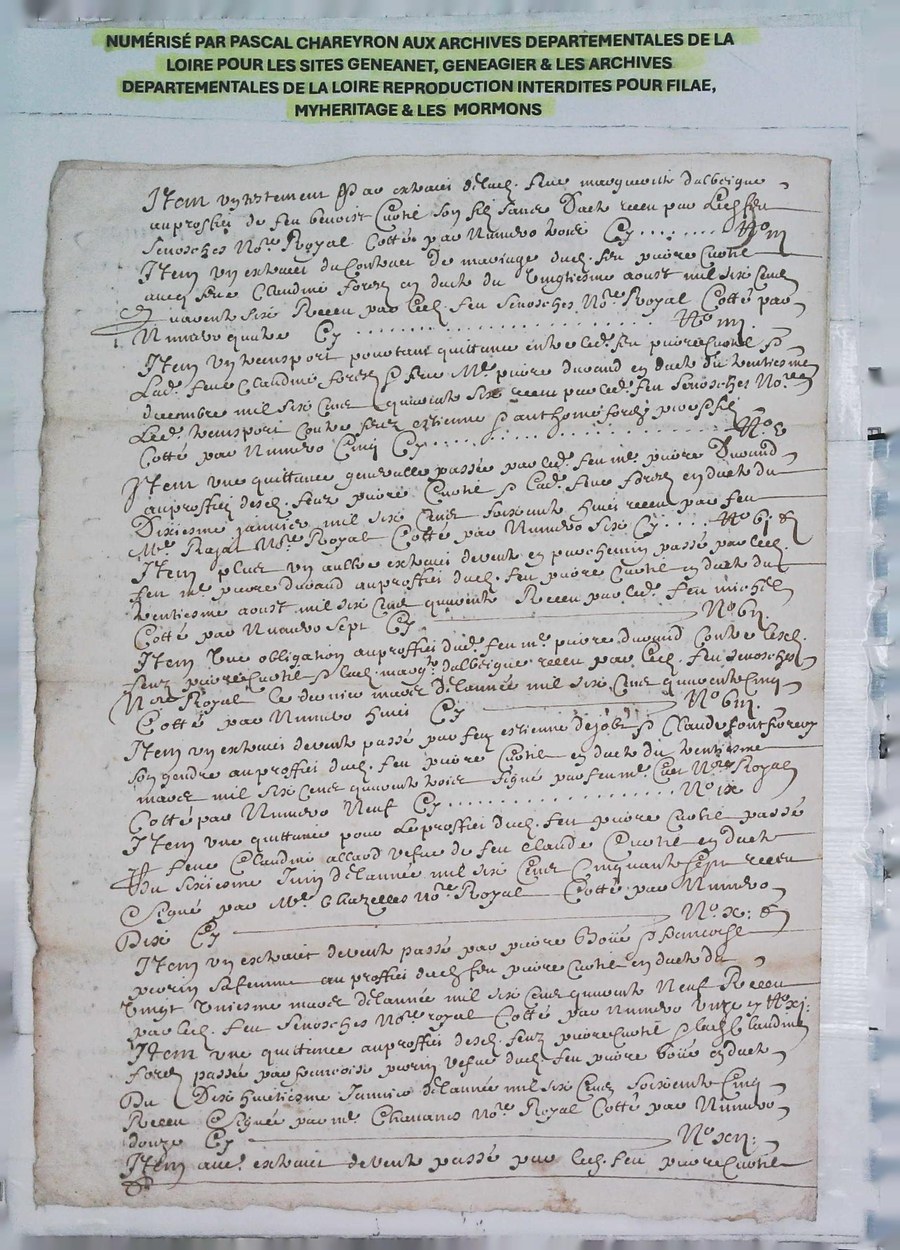 NUMÉRISÉ PAR PASCAL CHAREYRON AUX ARCHIVES DEPARTEMENTALES DE LA
LOIRE POUR LES SITES GENEANET, GENEAGIER & LES ARCHIVES
DEPARTEMENTALES DE LA LOIRE REPRODUCTION INTERDITES POUR FILAE,
MYHERITAGE & LES MORMONS
Item un testement par extraict feue marguerite dalbeigne
au proffict de feu benoist son filz sans Dacte receu par
Senosches No.re Royal Cotté par Numero trois Cy ........ No iij
Item un extraict du Contract De mariage dud. feu pierre
avecq feue Claudine forez en datte du Vingtiesme aoust mil six Cens
quarente sixe Receu par led. feu Senosches No.re Royal Cotté par
Numero quatre Cy .......................... No iiij.
Item un transport pourtant quittance entre led. feu pierre
Lad. feue Claudine forez feu M.e pierre durand en datte du trentiesme
decembre mil six Cens quarente six receu par led. feu Senosches No.re
Led. transport Contre feuz estienne anthome forez
Cotté par Numero Cinq Cy .................. No v
Item une quittance generalle passée par led. feu m.e pierre Durand
au proffict desd. feuz pierre Lad. feue forez en datte du
Dixiesme janvier mil six Cens soixante huit receu par feu
M.e No.re Royal Cotté par Numero six Cy ..... No 6j
Item plus un aultre extraict de vente en parchemin passé par led.
feu m.e pierre durand au proffict dud. feu pierre en datte du
trentiesme aoust mil six Cens quarente Receu par led. feu michel
Cotté par Numero sept Cy No 6ij
Item Une obligation au proffict dud. feu m.e pierre durand Contre lesd.
feuz pierre lad. marg.te dalbeigne receu par led. feu Senosches
No.re Royal le dernier mars de lannée mil six Cens quarente Cinq
Cotté par Numero huit Cy No 6iij.
Item un extraict de vente passé par feu estienne Claude
son gendre au proffict dud. feu pierre en datte du trentiesme
mars mil six Cens quarente trois Signé par feu m.e No.re Royal
Cotté par Numero Neuf Cy .................. No ix
Item une quittance pour Le proffict dud. feu pierre passée
feue Claudine allard vefve de feu Claude en datte
Du sixiesme Juin de lannée mil six Cens Cinquante sept receu
Signé par M.e Chazelles No.re Royal Cotté par Numero
Dixe Cy No x:
Item un extraict de vente passé par pierre
perrin sa femme au proffict dud. feu pierre en datte du
Vingt Uniesme mars de lannée mil six Cens quarente Neuf Receu
par led. feu Senosches No.re royal Cotté par Numero Unze cy No xj:
Item une quittance au proffict desd. feuz pierre lad. Claudine
forez passée par francoise perrin vefve dud. feu pierre en datte
Du Dixe huictiesme Janvier de lannée mil six Cens soixente Cinq
Receu Signée par m.e No.re Royal Cotté par Numero
douze Cy No xij:
Item extraict de vente passé par led. feu pierre